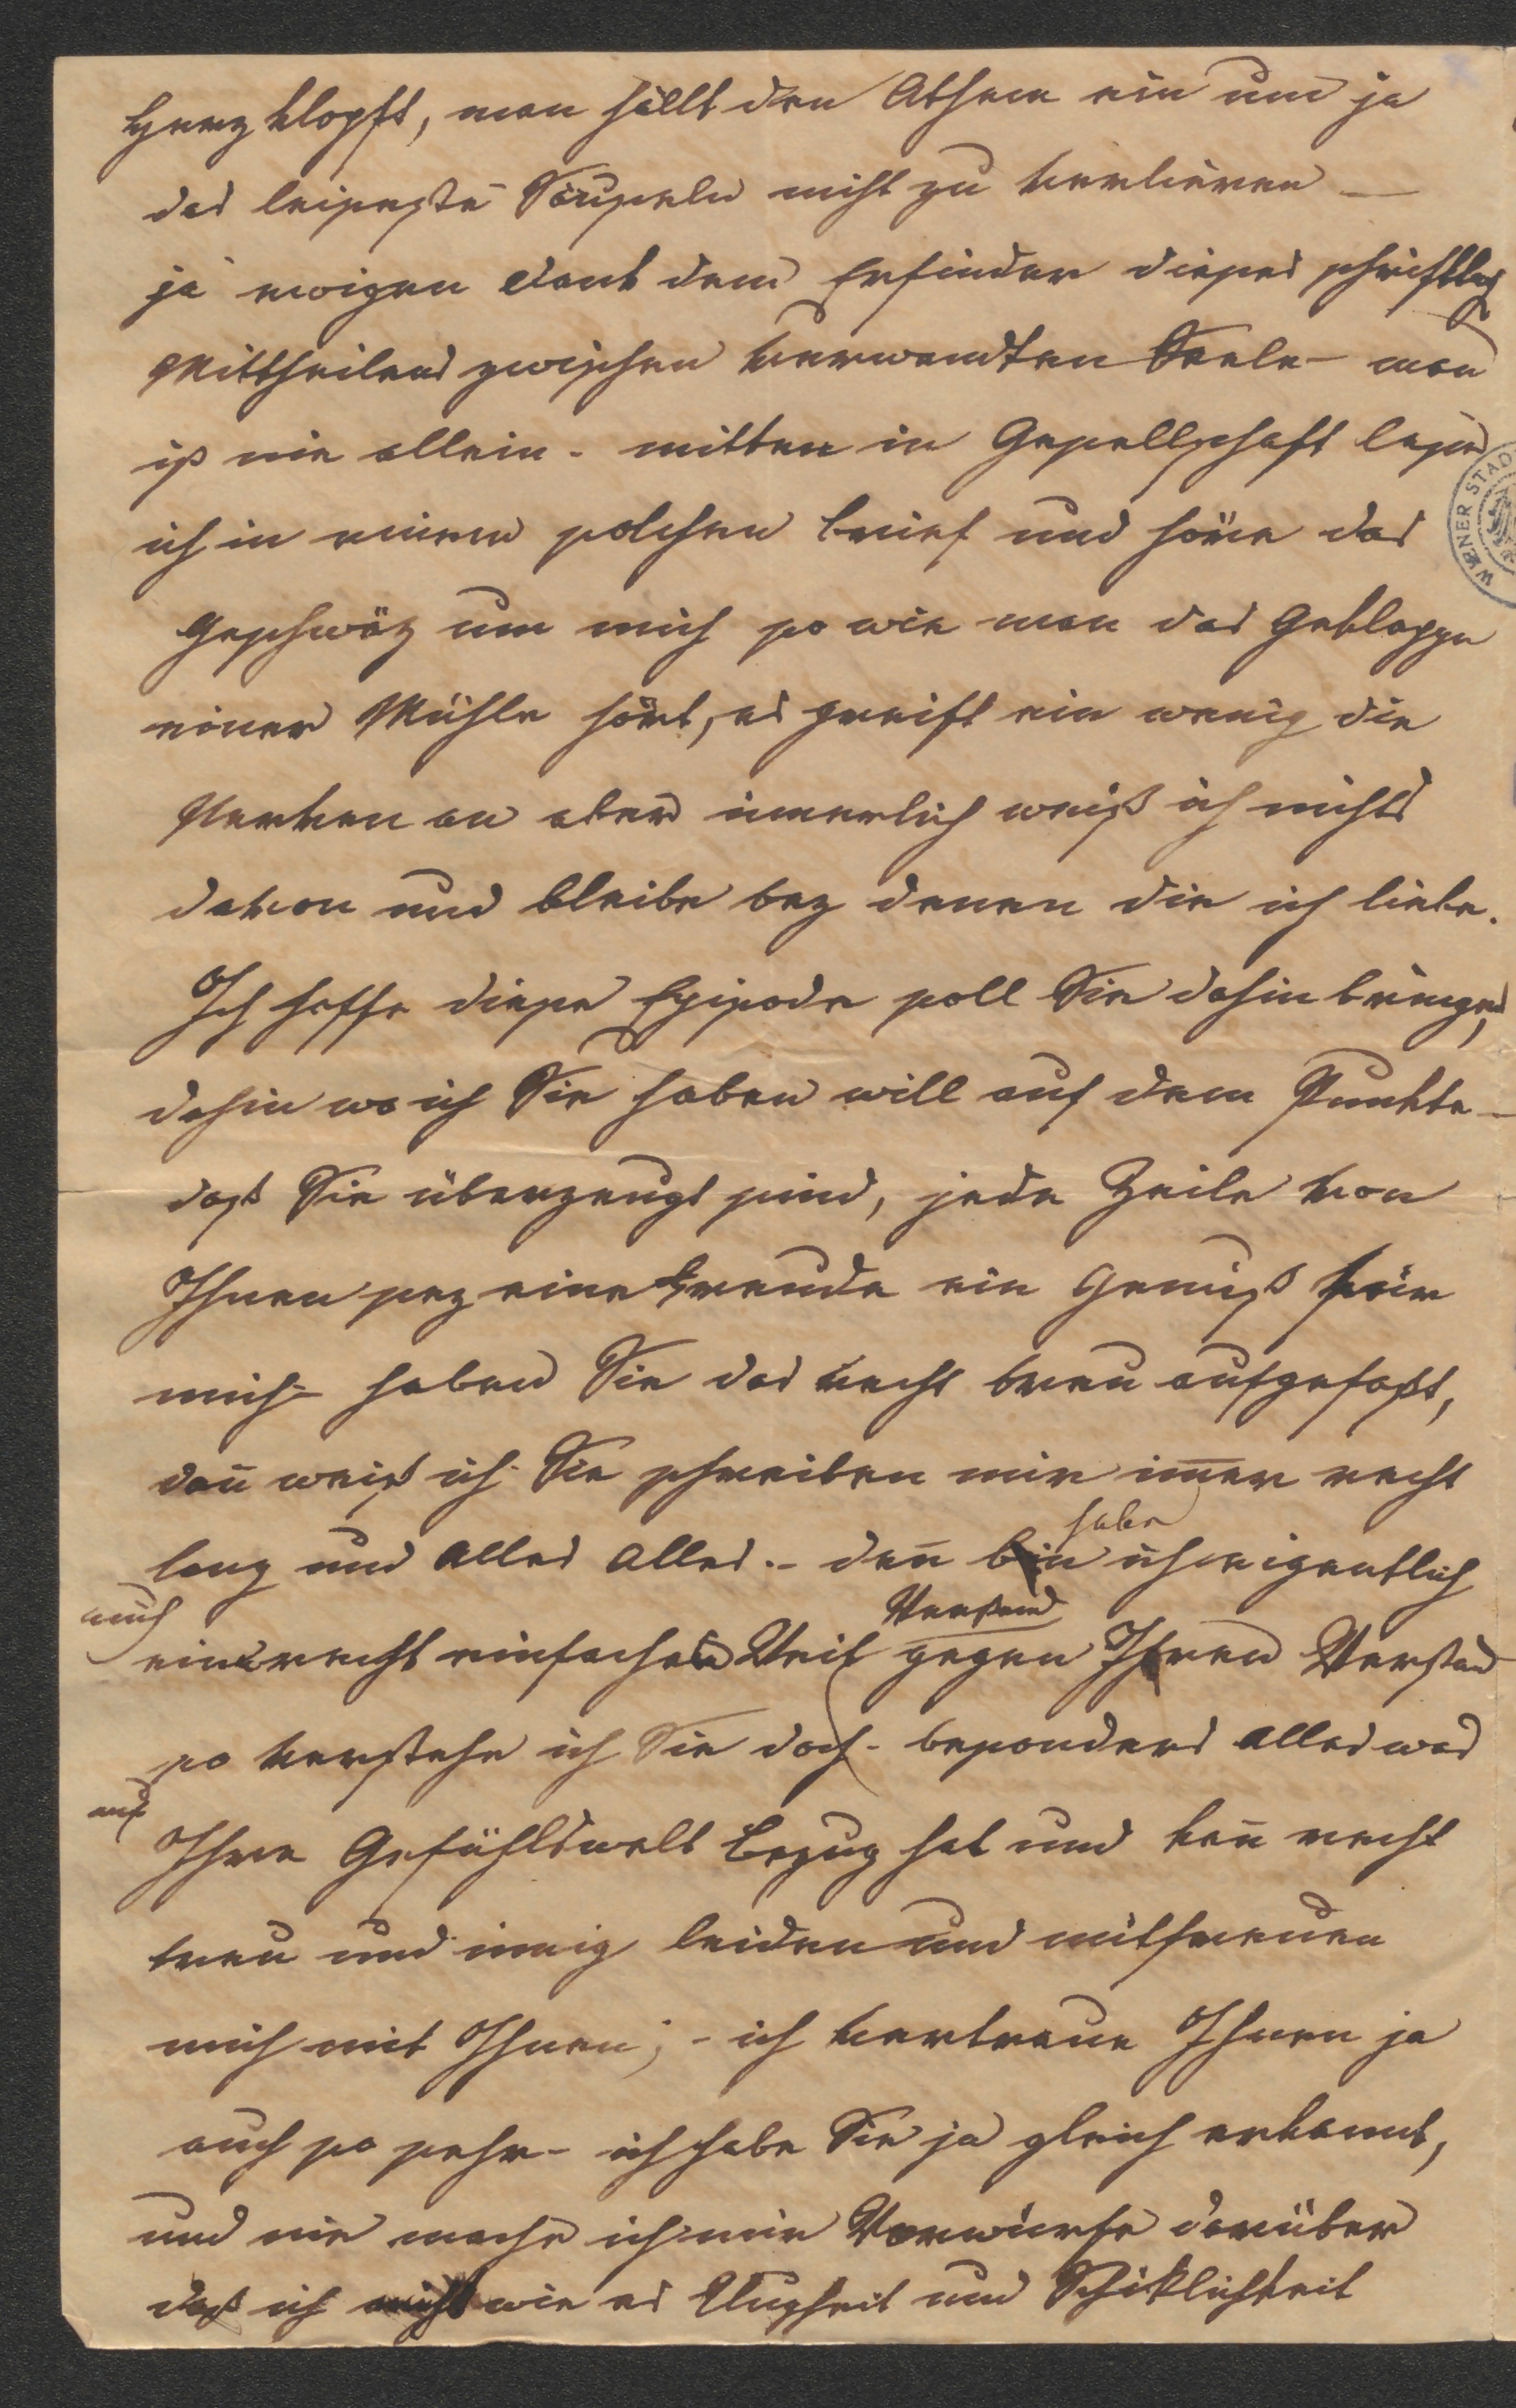 Herz klopft, man hält den Athem ein um ja
das leiseste Säuseln nicht zu verlieren —
ja ewigen Dank dem Erfinder dieses schriftlich
Mittheilens zwischen verwandten Seele – man
ist nie allein – mitten in Gesellschaft lese
ich in einem solchen Brief und höre das
Geschwätz um mich so wie man das Geklappe
einer Mühle hört, es greift ein wenig die
Nerven an aber innerlich weiß ich nichts
davon und bleibe bey denen die ich liebe.
Ich hoffe diese Episode soll Sie dahin bringen,
dahin wo ich Sie haben will auf dem Punkte –
daß Sie überzeugt sind, jede Zeile von
Ihnen sey eine Freude ein Genuß für
mich – haben Sie das recht treu aufgefaßt,
dan̄ weiß ich Sie schreiben mir im̄er recht
lang und Alles Alles. – den̄ bin ich eigentlich
habe
auch
einen recht einfachen gegen Ihren Verstand
Verstand
so verstehe ich Sie doch – besonders Alles was
auf
Ihre Gefühlswelt Bezug hat und kan̄ recht
treu und innig leiden und mitfreuen
mich mit Ihnen; – ich vertraue Ihnen ja
auch so sehr – ich habe Sie ja gleich erkannt,
und nie mache ich mir Vorwürfe darüber
daß ich nicht wie es Klugheit und Schiklichkeit
WIENER STAD